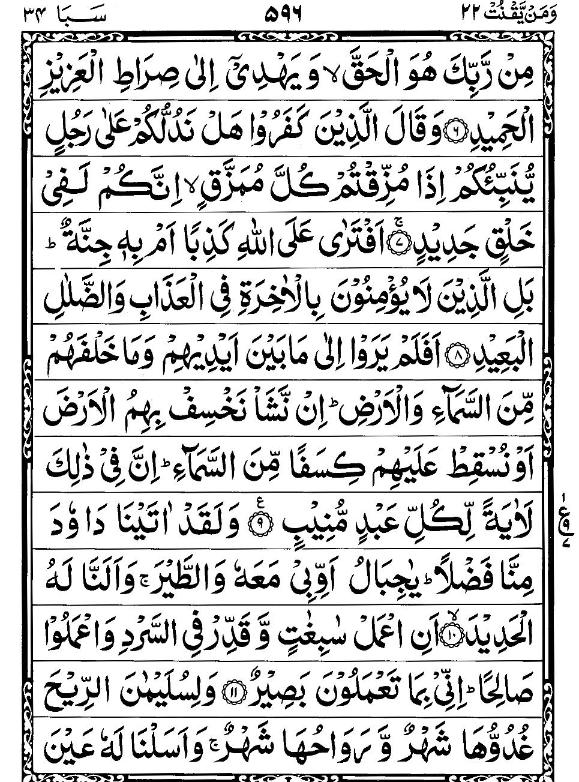 وَمَنْ يَّقْنُتْ ٢٢ ۵۹۶ سَبَا ٣٤
مِنْ رَّبِّكَ هُوَ الْحَقَّ ۙ وَ يَهْدِيْۤ اِلٰى صِرَاطِ الْعَزِيْزِ
الْحَمِيْدِ ﴿۶﴾ وَ قَالَ الَّذِيْنَ كَفَرُوْا هَلْ نَدُلُّكُمْ عَلٰى رَجُلٍ
يُّنَبِّئُكُمْ اِذَا مُزِّقْتُمْ كُلَّ مُمَزَّقٍ ۙ اِنَّكُمْ لَفِيْ
خَلْقٍ جَدِيْدٍ ﴿۷﴾ۚ اَفْتَرٰى عَلَى اللّٰهِ كَذِبًا اَمْ بِهٖ جِنَّةٌ ؕ
بَلِ الَّذِيْنَ لَا يُؤْمِنُوْنَ بِالْاٰخِرَةِ فِي الْعَذَابِ وَالضَّلٰلِ
الْبَعِيْدِ ﴿۸﴾ اَفَلَمْ يَرَوْا اِلٰى مَا بَيْنَ اَيْدِيْهِمْ وَمَا خَلْفَهُمْ
مِّنَ السَّمَآءِ وَالْاَرْضِ ؕ اِنْ نَّشَاْ نَخْسِفْ بِهِمُ الْاَرْضَ
اَوْ نُسْقِطْ عَلَيْهِمْ كِسَفًا مِّنَ السَّمَآءِ ؕ اِنَّ فِيْ ذٰلِكَ
لَاٰيَةً لِّكُلِّ عَبْدٍ مُّنِيْبٍ ﴿۹﴾ۧ وَ لَقَدْ اٰتَيْنَا دَاوٗدَ
مِنَّا فَضْلًا ؕ يٰجِبَالُ اَوِّبِيْ مَعَهٗ وَالطَّيْرَ ۚ وَاَلَنَّا لَهُ
الْحَدِيْدَ ﴿۱۰﴾ۙ اَنِ اعْمَلْ سٰبِغٰتٍ وَّ قَدِّرْ فِي السَّرْدِ وَاعْمَلُوْا
صَالِحًا ؕ اِنِّيْ بِمَا تَعْمَلُوْنَ بَصِيْرٌ ﴿۱۱﴾ وَلِسُلَيْمٰنَ الرِّيْحَ
غُدُوُّهَا شَهْرٌ وَّ رَوَاحُهَا شَهْرٌ ۚ وَاَسَلْنَا لَهٗ عَيْنَ